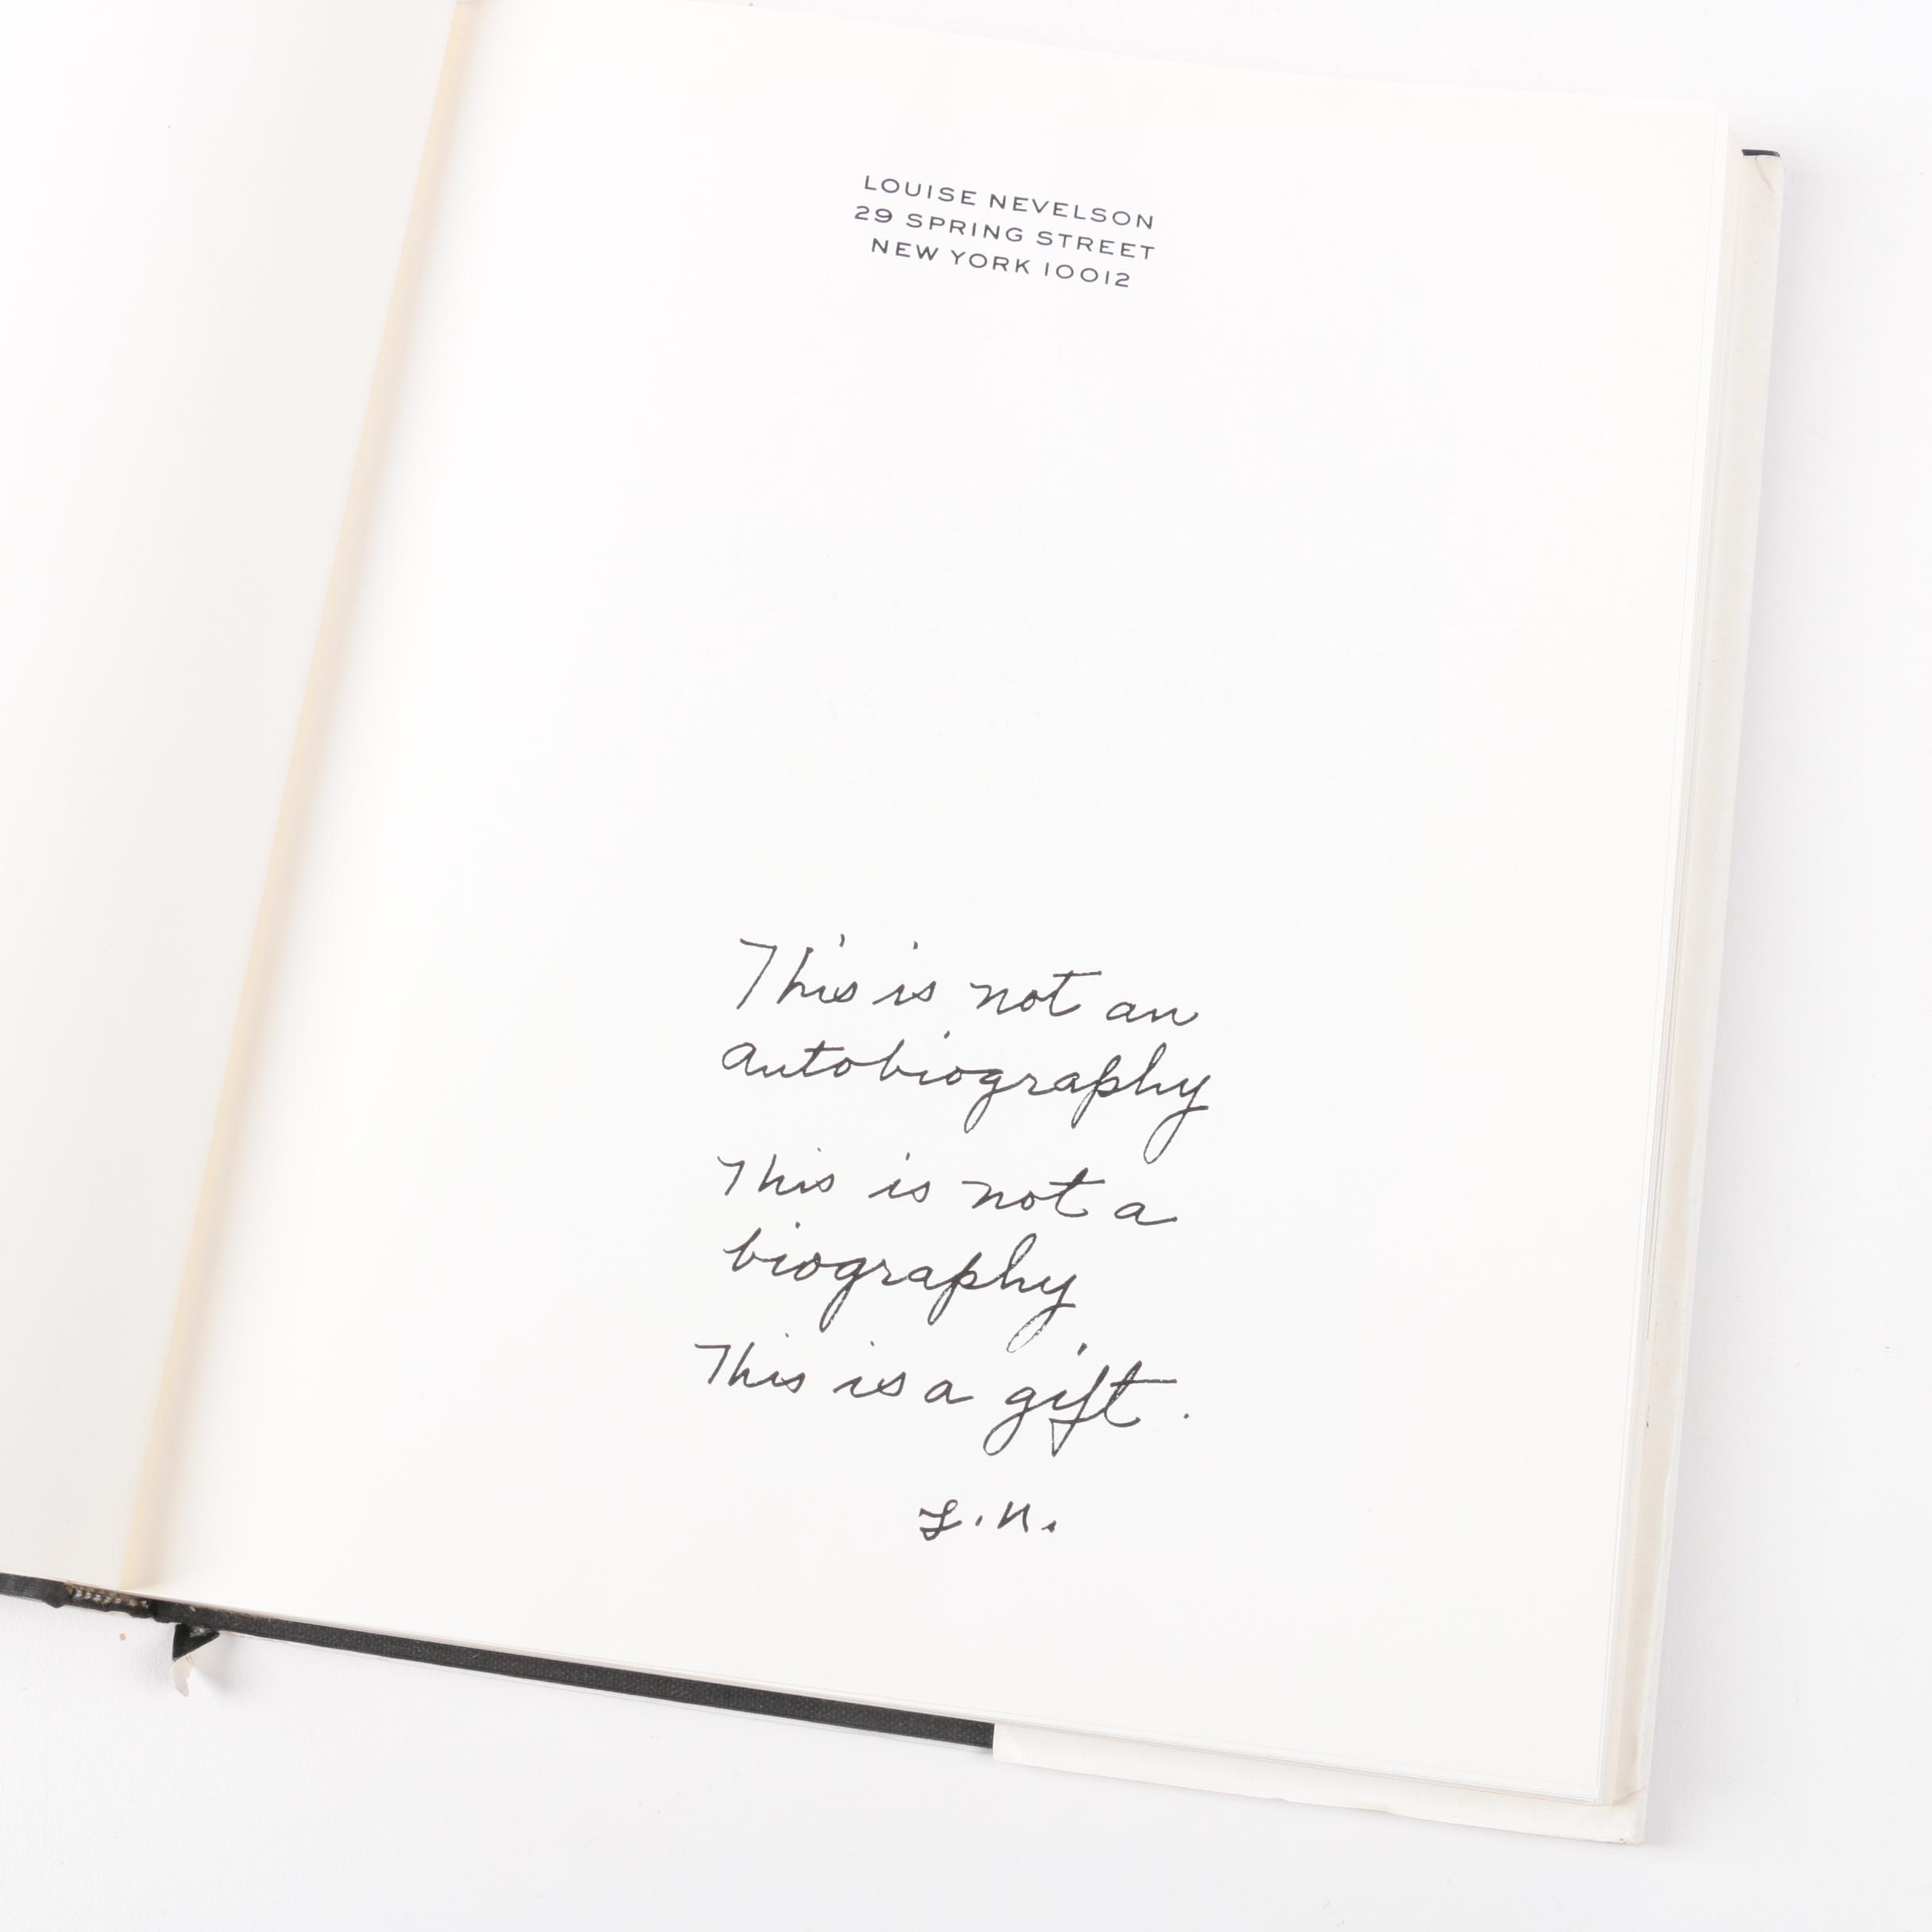 LOUISE NEVELSON
29 SPRING STREET
NEW YORK 10012
This is not an
autobiography
This is not a
biography
This is a gift.
L.N.